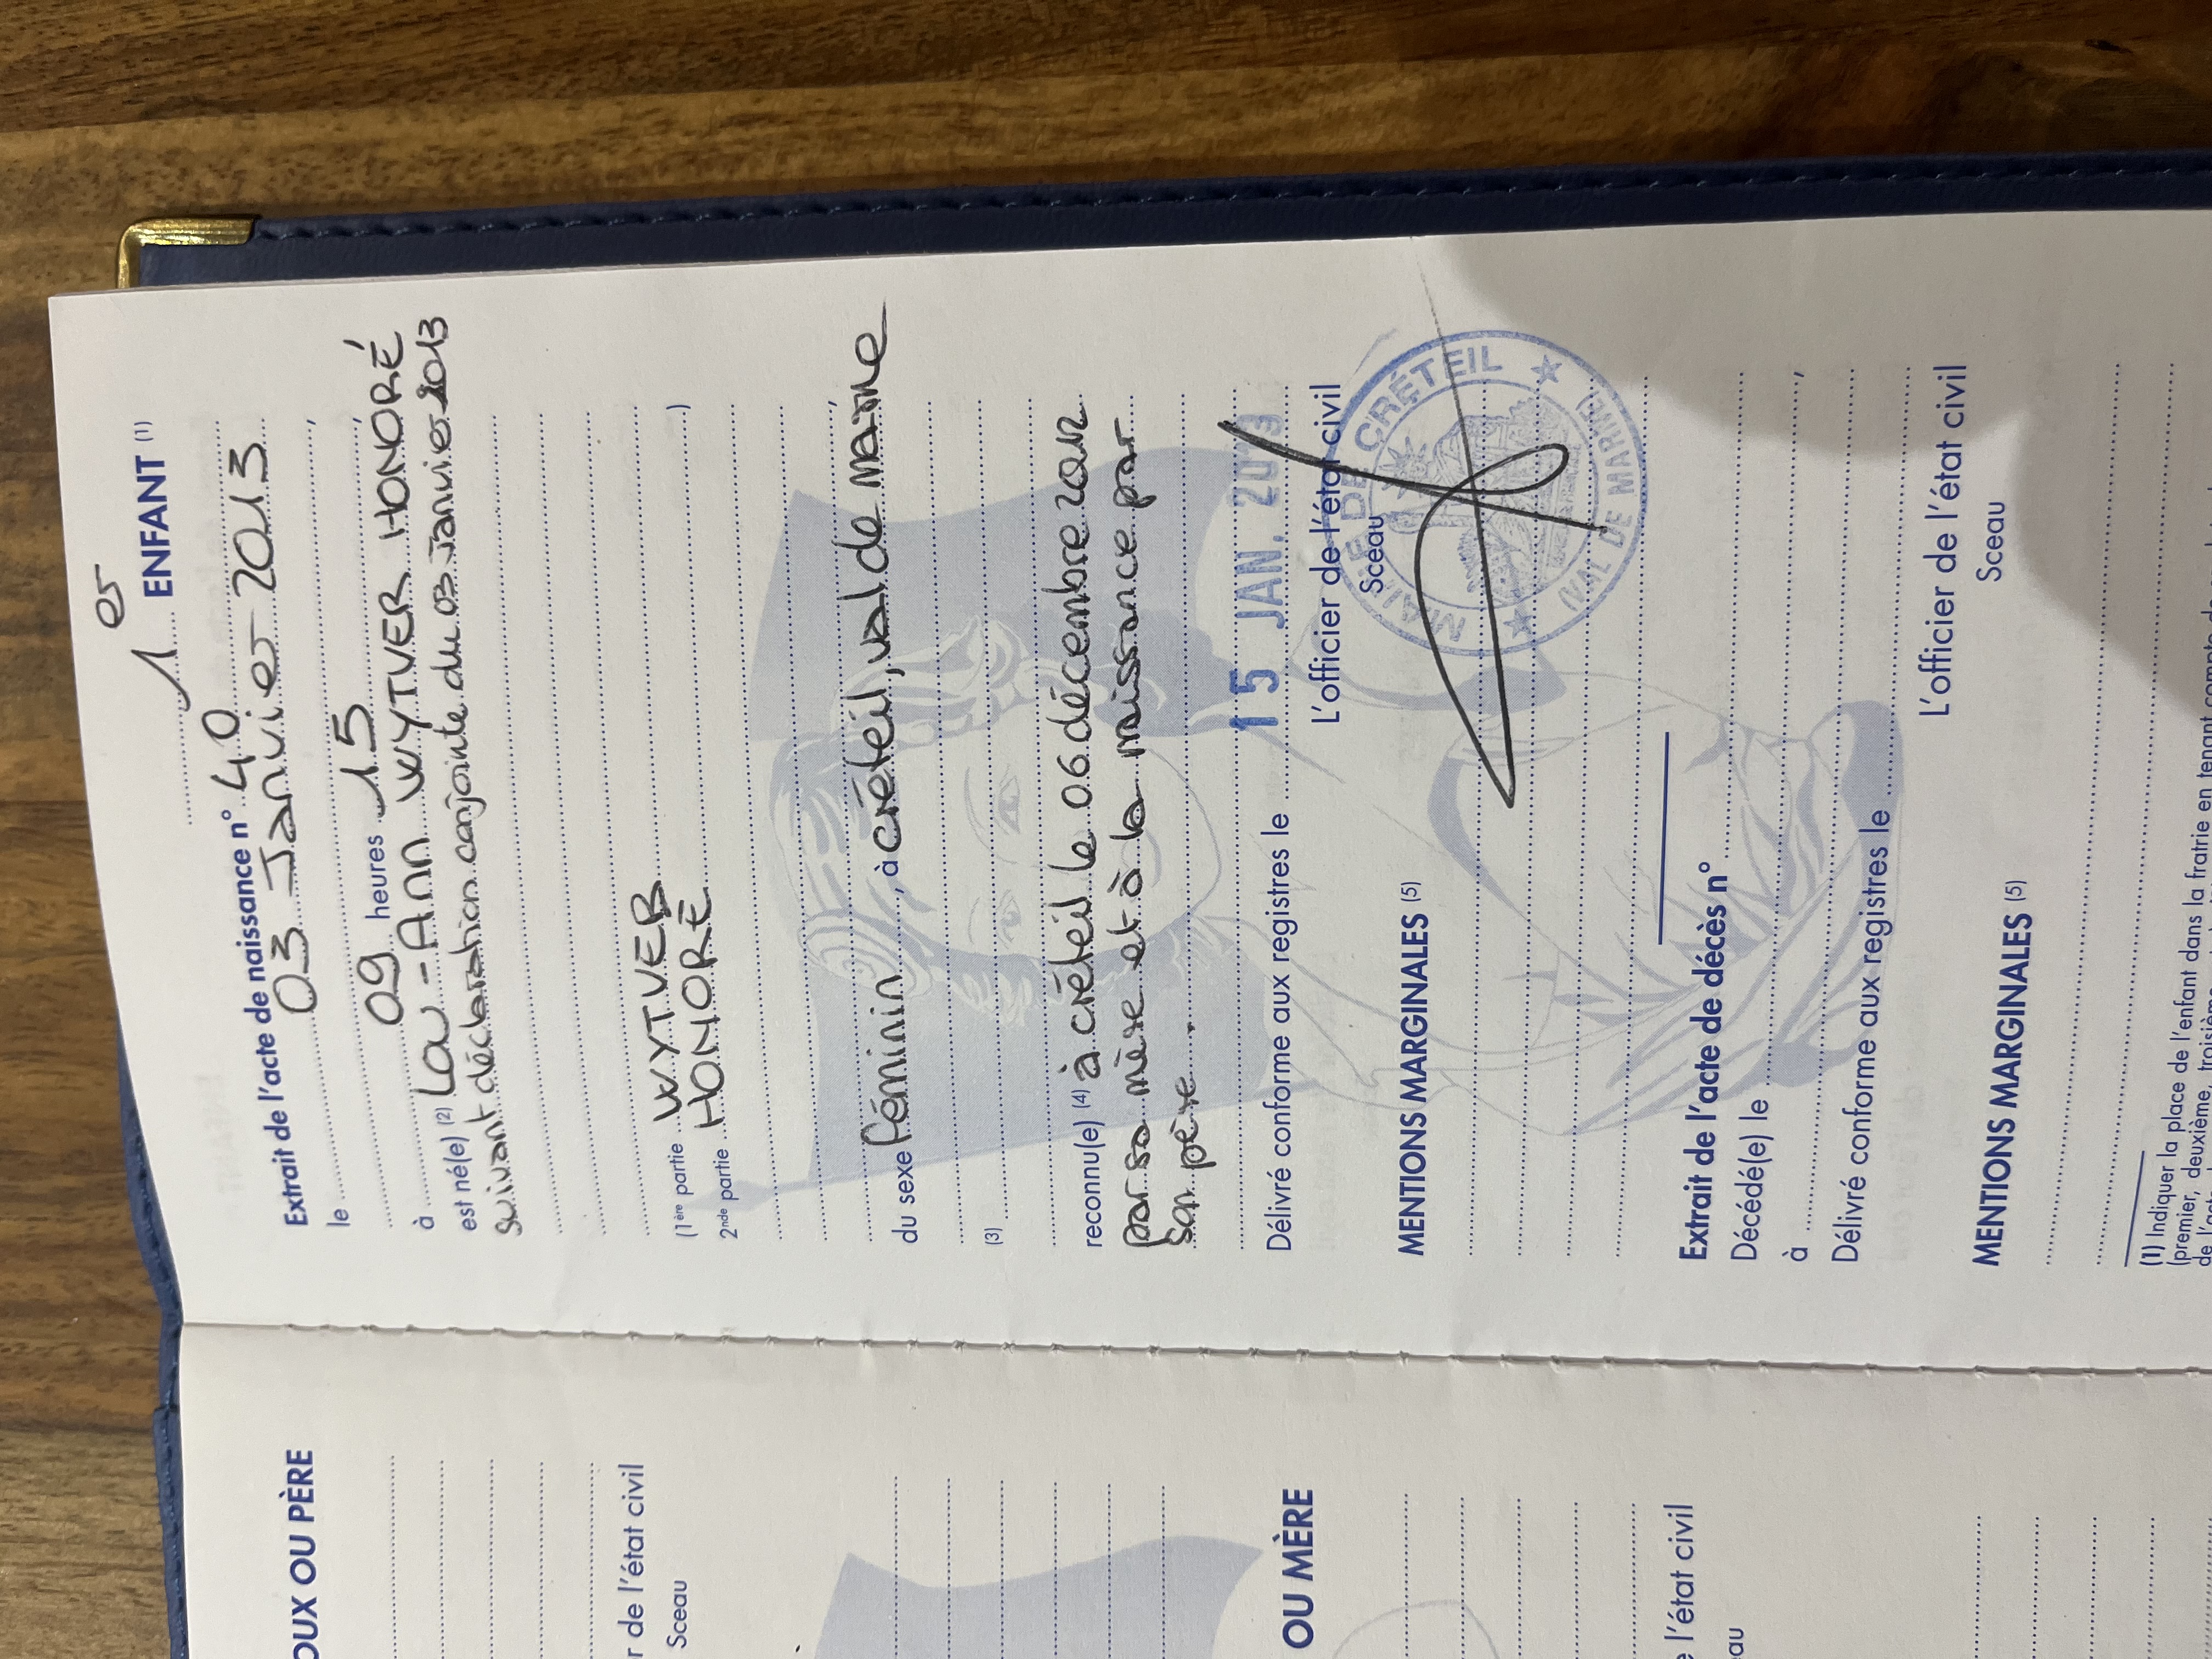 1er ENFANT (1)
Extrait de l'acte de naissance n° 40
le 03 Janvier 2013,
à 09 heures 15,
est né(e) (2) Lou-Ann WYTVER HONORÉ
suivant déclaration conjointe du 03 Janvier 2013
(1ère partie WYTVER)
2nde partie HONORÉ
du sexe féminin, à créteil, val de marne
(3)
reconnu(e) (4) à créteil le 06 décembre 2012
par sa mère et à la naissance par
son père
Délivré conforme aux registres le 15 JAN. 2013
L'officier de l'état civil
Sceau
MAIRIE DE CRÉTEIL
(VAL DE MARNE)
MENTIONS MARGINALES (5)
Extrait de l'acte de décès n°
Décédé(e) le
à
Délivré conforme aux registres le
L'officier de l'état civil
Sceau
MENTIONS MARGINALES (5)
(1) Indiquer la place de l'enfant dans la fratrie en tenant compte
(premier, deuxième, troisième
OUX OU PÈRE
r de l'état civil
Sceau
OU MÈRE
e l'état civil
eau